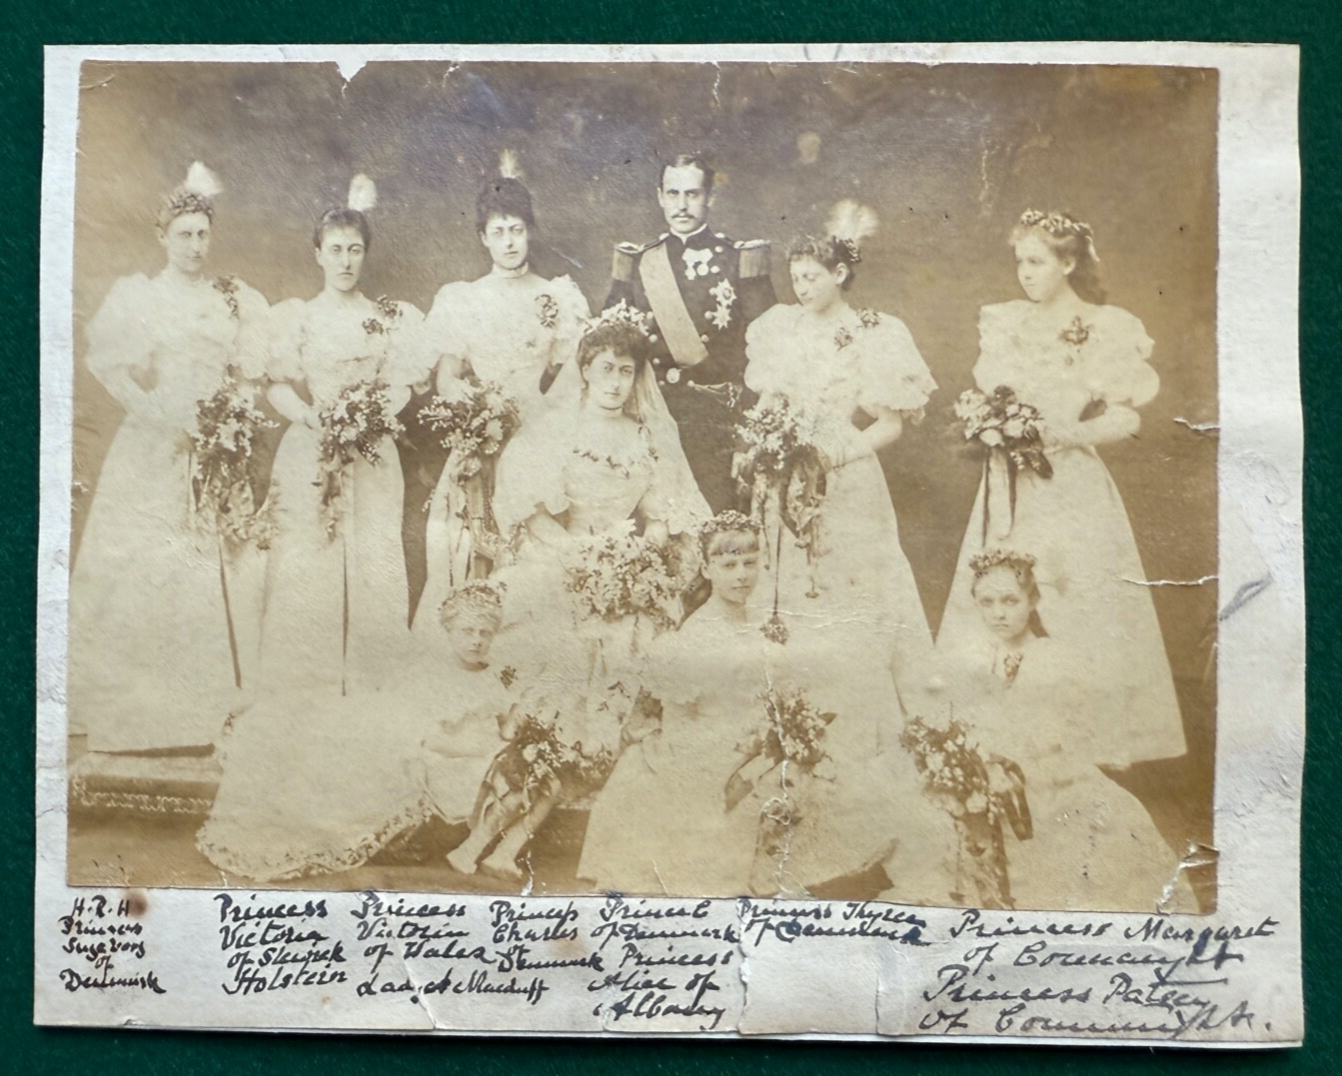 H.R.H
Princess
Ingeborg
of
Denmark
Princess
Victoria
of Slewick
Holstein
Princess
Victoria
of Wales
Lady A Macduff
Princess
Charles
of
Denmark
Prince C
of Denmark
Princess
Alice of
Albany
Princess Thyra
of Denmark
Princess Margaret
of Connaught
Princess Patsy
of Connaught.